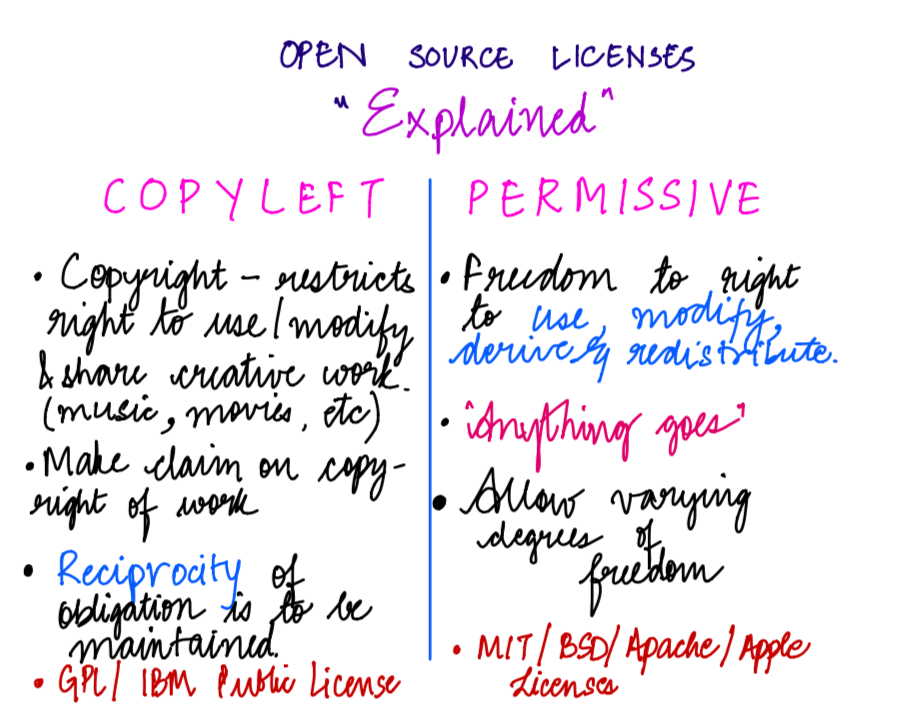 OPEN SOURCE LICENSES
"Explained"
COPYLEFT
• Copyright – restricts
right to use/modify
& share creative work.
(music, movies, etc)
• Make claim on copy-
right of work
• Reciprocity of
obligation is to be
maintained.
• GPL/ IBM Public License
PERMISSIVE
• Freedom to right
to use, modify,
derive & redistribute.
• "Anything goes"
• Allow varying
degrees of
freedom
• MIT/BSD/Apache/Apple
Licenses